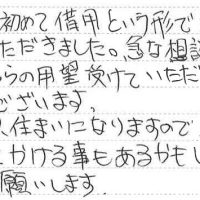 初めて借用という形で
ただきました。急な相談
らの用望受けていただ
ございます。
人住まいになりますので
かける事もあるかもし
願いします.